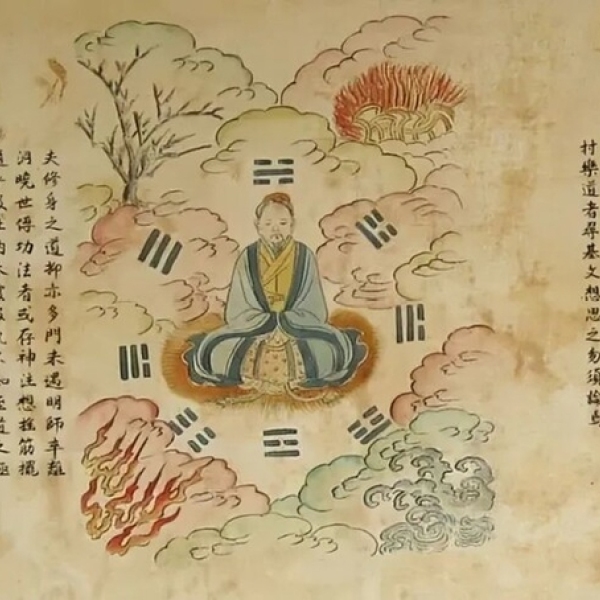 村樂道者尋基文想思之勿須
夫修身之道抑亦多門未遇明師卒難
洞曉世傳功注者或存神注想捻筋擺